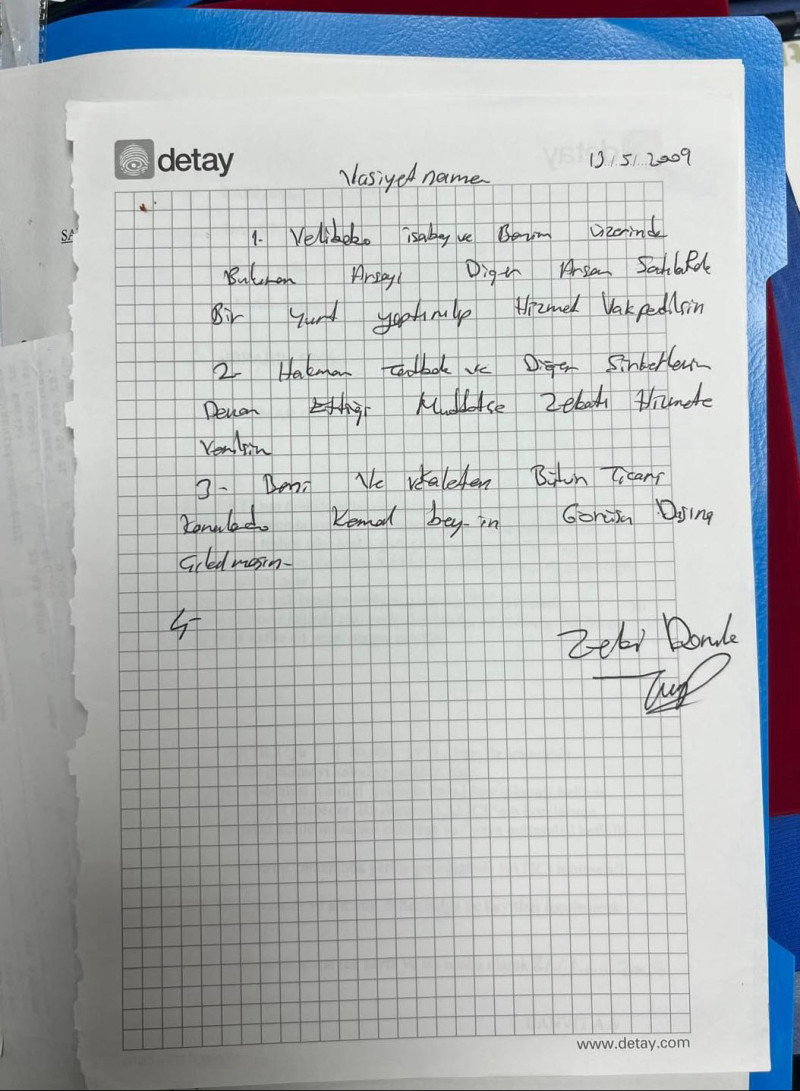 detay
13/5/2009
Vasiyet name
1. Velibaba isabey ve Benim üzerinde
Bulunan Arsayı Diğer Arsan
Bir yurt yaptırılıp Hizmet Vakfedilsin
2- Hakman ve Diğer Şirketlerin
Devam Ettiği Müddetçe Zekatı Hizmete
Verilsin
3- Beni Ve vekaleten Bütün Ticari
konularda Kemal bey-in Görüşü Dışına
Çıkılmasın-
4-
Zeki
www.detay.com